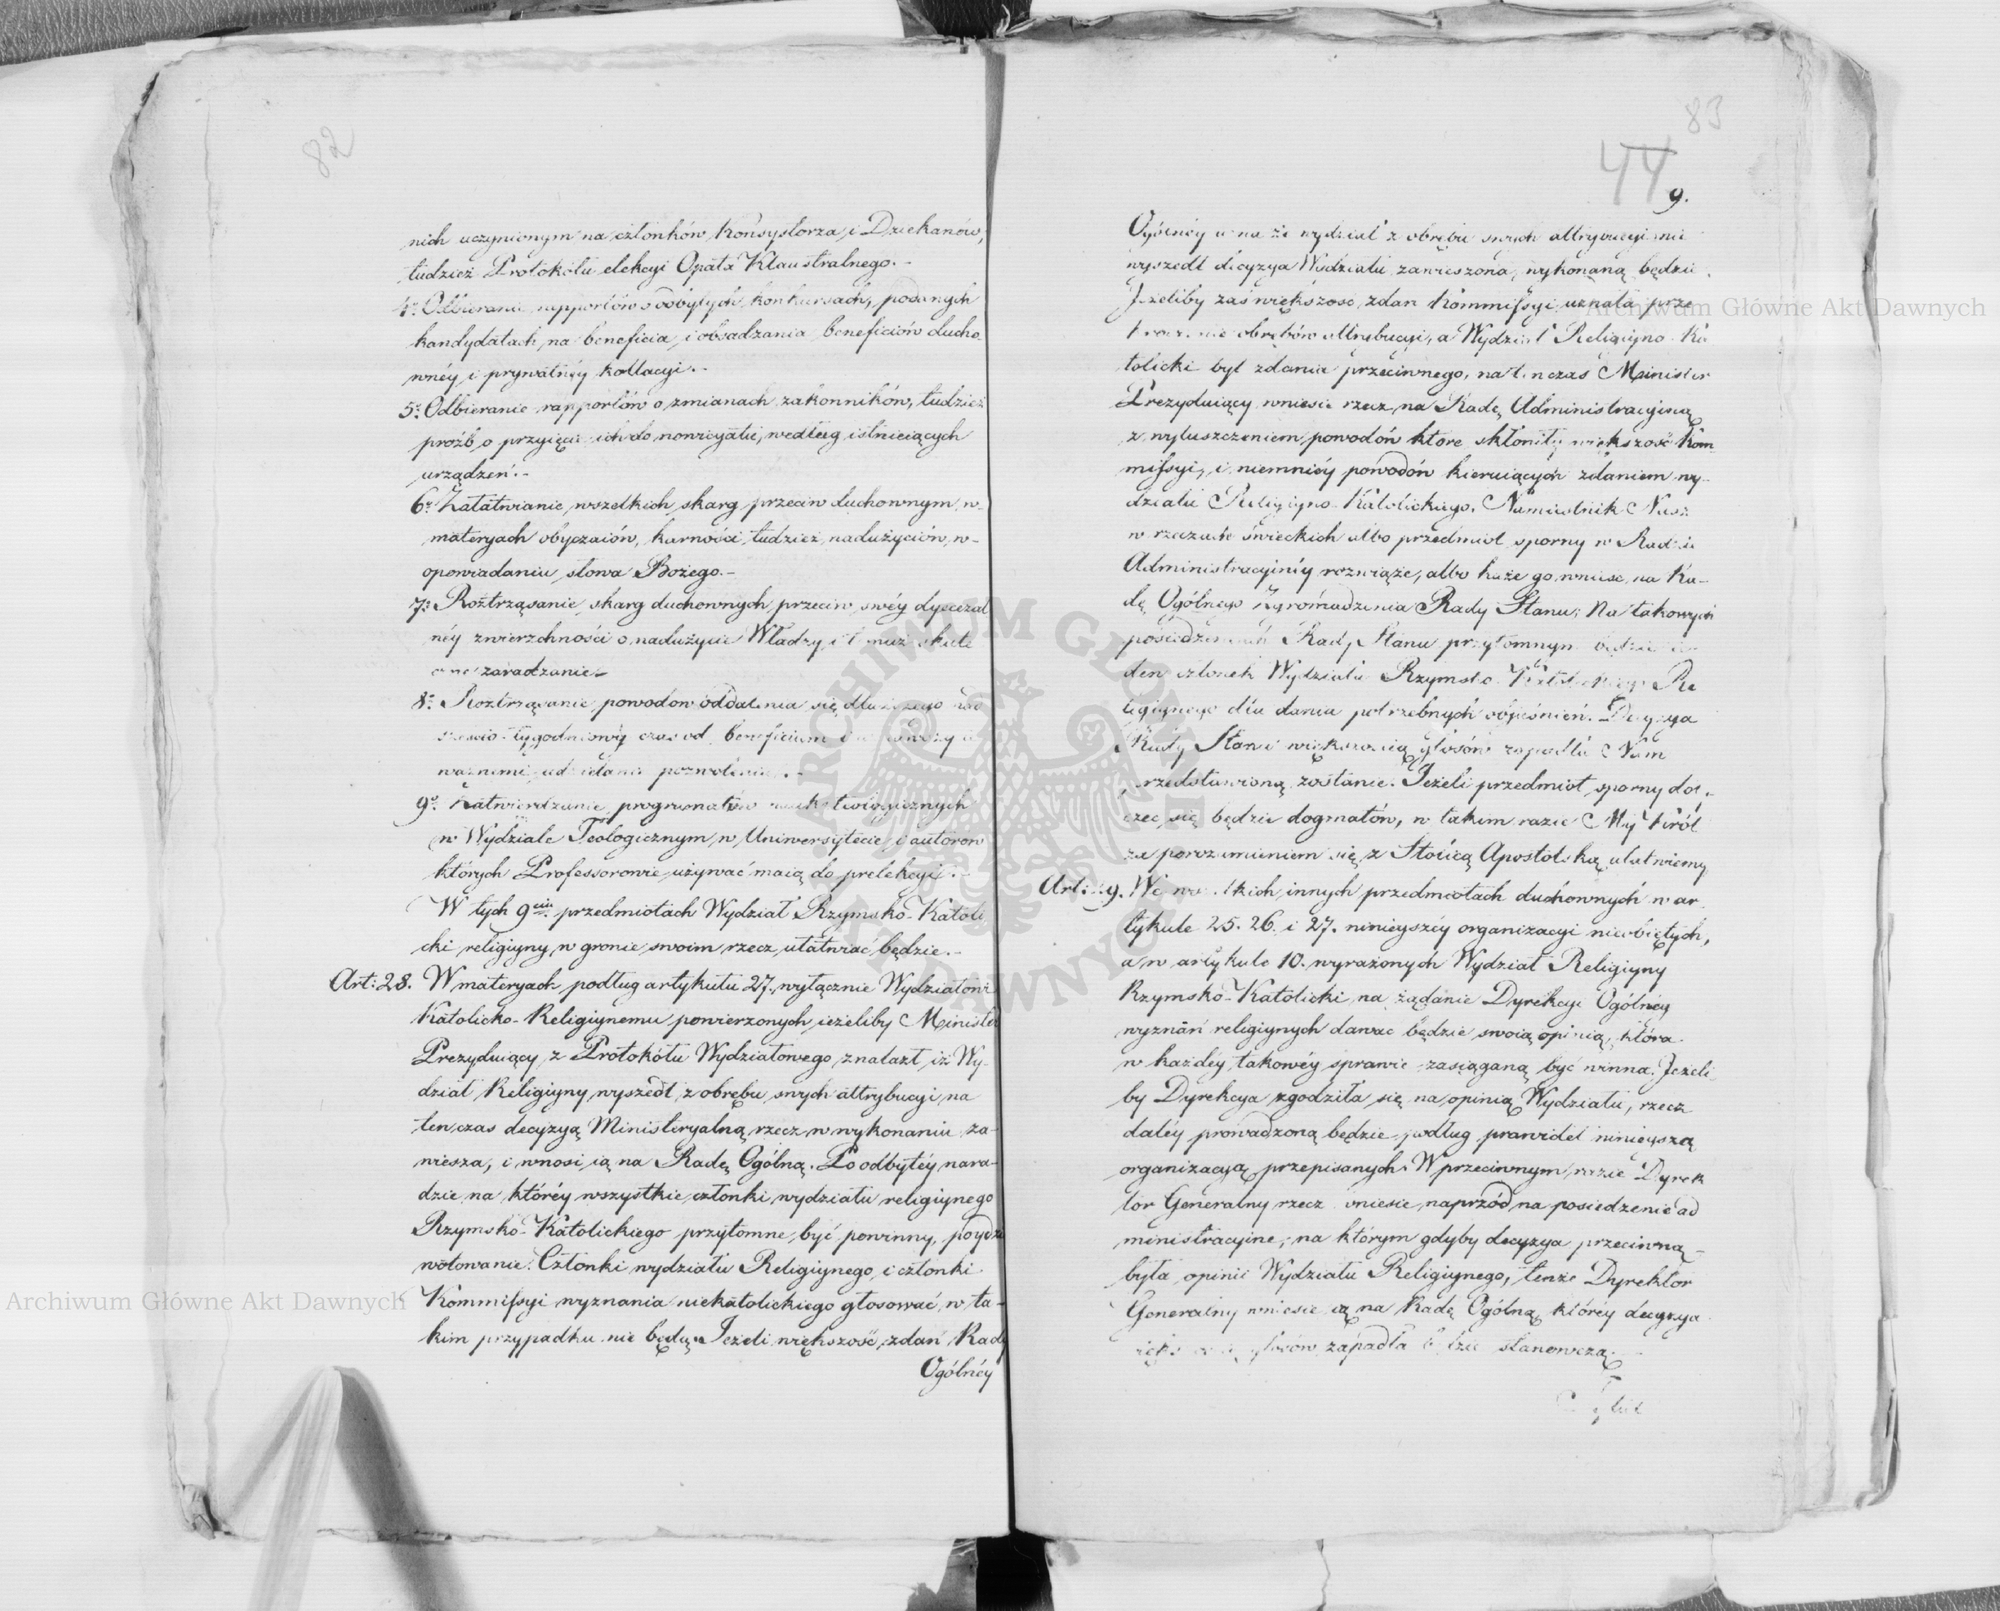 82
nich uczynionym na członków Konsystorza i Dziekanów,
tudzież Protokółu elekcyi Opata Klaustralnego.-
4º Odbieranie rapportów o odbytych konkursach, podanych
kandydatach na beneficia, i obsadzania beneficiówducho
wnéy i prywatnéy kollacyi.-
5º Odbieranie rapportów o zmianach zakonników, tudzież
proźb o przyięcie ich do nowicyatu, według istnieiących
urządzeń.-
6º Załatwianie wszelkich skarg przeciw duchownym w
materyach obyczaiów, karności tudzież nadużyciów w-
opowiadaniu słowa Bożego.-
7º Roztrząsanie skarg duchownych przeciw swéy dyecezal
néy zwierzchności o nadużycie Władzy i temuż skute
czne zaradzanie.-
8º Roztrząsanie powodów oddalenia się dłuższego nad
sześcio-tygodniowy czas od beneficium i
ważnemi udzielanie pozwolenia.-
9º Zatwierdzanie programatów nauk teologicznych
w Wydziale Teologicznym w Uniwersytecie, i autorów
których Professorowie używać maią do prelekcyi.-
W tych 9ciu przedmiotach Wydział Rzymsko-Katoli
cki religiyny w gronie swoim rzecz ułatwiać będzie.-
Art: 28. W materyach podług artykułu 27. wyłącznie Wydziałowi
Katolicko-Religiynemu powierzonych, ieżeliby Minister
Prezyduiący z Protokółu Wydziałowego znalazł, iż Wy-
dział Religiyny wyszedł z obrębu swych attrybucyi, na
ten czas decyzyą Ministeryalną rzecz w wykonaniu za-
wiesza, i wnosi ią na Radę Ogólną. Po odbytéy nara-
dzie na któréy wszystkie członki wydziału religiynego
Rzymsko-Katolickiego przytomne być powinny, póydzie
wotowanie. Członki wydziału Religiynego i członki
Kommissyi wyznania niekatolickiego głosować w ta-
kim przypadku nie będą. Jeżeli większość zdań Rady
Ogólnéy
83
44
9.
Ogólnéy uzna że wydział z obrębu swych attrybucyi nie
wyszedł decyzya Wydziału zawieszona, wykonaną będzie.
Jeżeliby zaś większość zdań Kommissyi uznała prze
kroczenie obrębów attrybucyi, a Wydział Religiyno-Ka
tolicki był zdania przeciwnego, natenczas Minister
Prezyduiący wniesie rzecz na Radę Administracyiną
z wyłuszczeniem powodów które skłoniły większość Kom
missyi, i niemniéy powodów kieruiących zdaniem wy-
działu Religiyno-Katolickiego. Namiestnik Nasz
w rzeczach świeckich albo przedmiot sporny w Radzie
Administracyinéy rozwiąże, albo każe go wnieść na Ra-
dę Ogólnego Zgromadzenia Rady Stanu; Na takowych
posiedzeniach Rady Stanu przytomnym będzie ie
den członek Wydziału Rzymsko Katolickiego Re
ligiynego dla dania potrzebnych obiaśnień. Decyzya
Rady Stanu większością głosów zapadła Nam
przedstawioną zostanie. Jeżeli przedmiot sporny do-
czeć się będzie dogmatów, w takim razie My Król
za porozumieniem się z Stolicą Apostolską ułatwiemy
Art: 29. We wszelkich innych przedmiotach duchownych w ar-
tykule 25. 26. i 27. ninieyszéy organizacyi nieobiętych,
a w artykule 10. wyrażonych Wydział Religiyny
Rzymsko-Katolicki na żądanie Dyrekcyi Ogólnéy
wyznań religiynych dawać będzie swoią opinią, która
w każdéy takowéy sprawie zasiąganą być winna. Jeżeli
by Dyrekcya zgodziła się na opinią Wydziału, rzecz
daléy prowadzoną będzie podług prawideł ninieyszą
organizacyą przepisanych. W przeciwnym razie Dyrek
tor Generalny rzecz wniesie naprzód na posiedzenie ad
ministracyine, na którym gdyby decyzya przeciwną
była opinii Wydziału Religiynego, tenże Dyrektor
Generalny wniesie ią na Radę Ogólną, któréy decyzya
większością głosów zapadła będzie stanowczą.-
Tytuł
Archiwum Główne Akt Dawnych
Archiwum Główne Akt Dawnych
ARCHIWUM GŁÓWNE AKT DAWNYCH